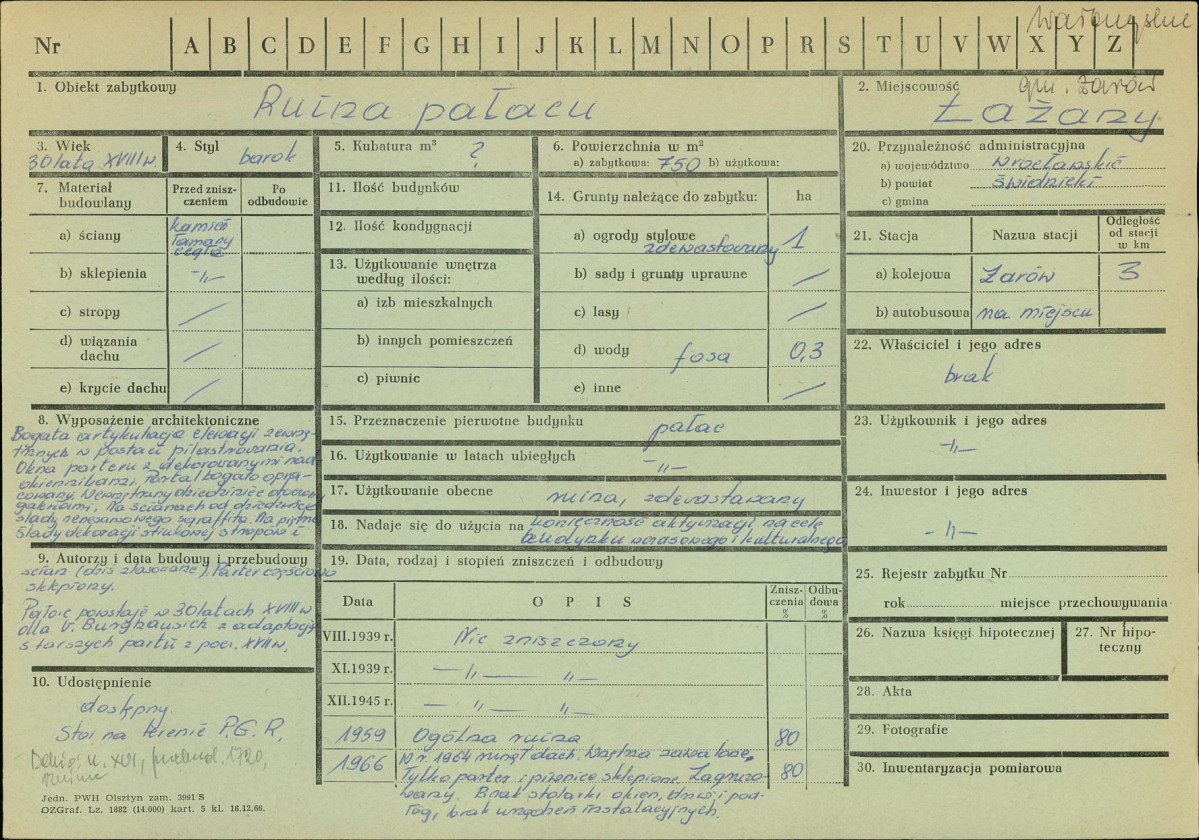 Nr A B C D E F G H I J K L M N O P R S T U V W X Y Z
1. Obiekt zabytkowy
Ruina pałacu
2. Miejscowość
gm. Żarów
Łażany
3. Wiek
30 lata XVIII w.
4. Styl
barok
5. Kubatura m³
?
6. Powierzchnia w m²
a) zabytkowa: 750 b) użytkowa:
20. Przynależność administracyjna
a) województwo wrocławskie
b) powiat świdnicki
c) gmina
7. Materiał budowlany
Przed zniszczeniem
Po odbudowie
a) ściany
kamień
łamany
cegła
b) sklepienia -"-
c) stropy /
d) wiązania dachu /
e) krycie dachu /
11. Ilość budynków
12. Ilość kondygnacji
13. Użytkowanie wnętrza
według ilości:
a) izb mieszkalnych
b) innych pomieszczeń
c) piwnic
14. Grunty należące do zabytku: ha
a) ogrody stylowe
zdewastowany 1
b) sady i grunty uprawne /
c) lasy /
d) wody fosa 0,3
e) inne /
21. Stacja Nazwa stacji Odległość od stacji w km
a) kolejowa Żarów 3
b) autobusowa na miejscu
22. Właściciel i jego adres
brak
8. Wyposażenie architektoniczne
Bogata artykulacja elewacji zewnę-
trznych w postaci pilastrowania.
Okna parteru z dekorowanymi nad-
okiennikami. Portal bogato opra-
cowany. Wewnętrzny dziedziniec
galeriami. Na ścianach od dziedzińca
ślady renesansowego sgraffita. Na piętrze
ślady dekoracji stiukowej stropów i
9. Autorzy i data budowy i przebudowy
ścian Parter częściowo
sklepiony.
Pałac powstaje w 30 latach XVIII w
dla v. z adaptacją
starszych partii z pocz. XVII w.
10. Udostępnienie
dostępny.
Stoi na terenie P.G.R.
XVI, 1720,
15. Przeznaczenie pierwotne budynku
pałac
16. Użytkowanie w latach ubiegłych
-"-
17. Użytkowanie obecne
ruina, zdewastowany
18. Nadaje się do użycia na
konieczność na cele
budynku wczasowego i kulturalnego
19. Data, rodzaj i stopień zniszczeń i odbudowy
Data OPIS Zniszczenia % Odbudowa %
VIII.1939 r. Nie zniszczony
XI.1939 r. — " — " —
XII.1945 r. — " — " —
1959 Ogólna ruina 80
1966 W r. 1964 runął dach. Wnętrza zawalone.
Tylko parter i piwnice sklepione. Zagruzo- 80
wany. Brak stolarki okien, drzwi i pod-
łogi, brak urządzeń instalacyjnych.
23. Użytkownik i jego adres
-"-
24. Inwestor i jego adres
-"-
25. Rejestr zabytku Nr
rok miejsce przechowywania
26. Nazwa księgi hipotecznej
27. Nr hipoteczny
28. Akta
29. Fotografie
30. Inwentaryzacja pomiarowa
Jedn. PWH Olsztyn zam. 3991/S
OZGraf. Lz. 1882 (14.000) kart. 5 kl. 16.12.66.